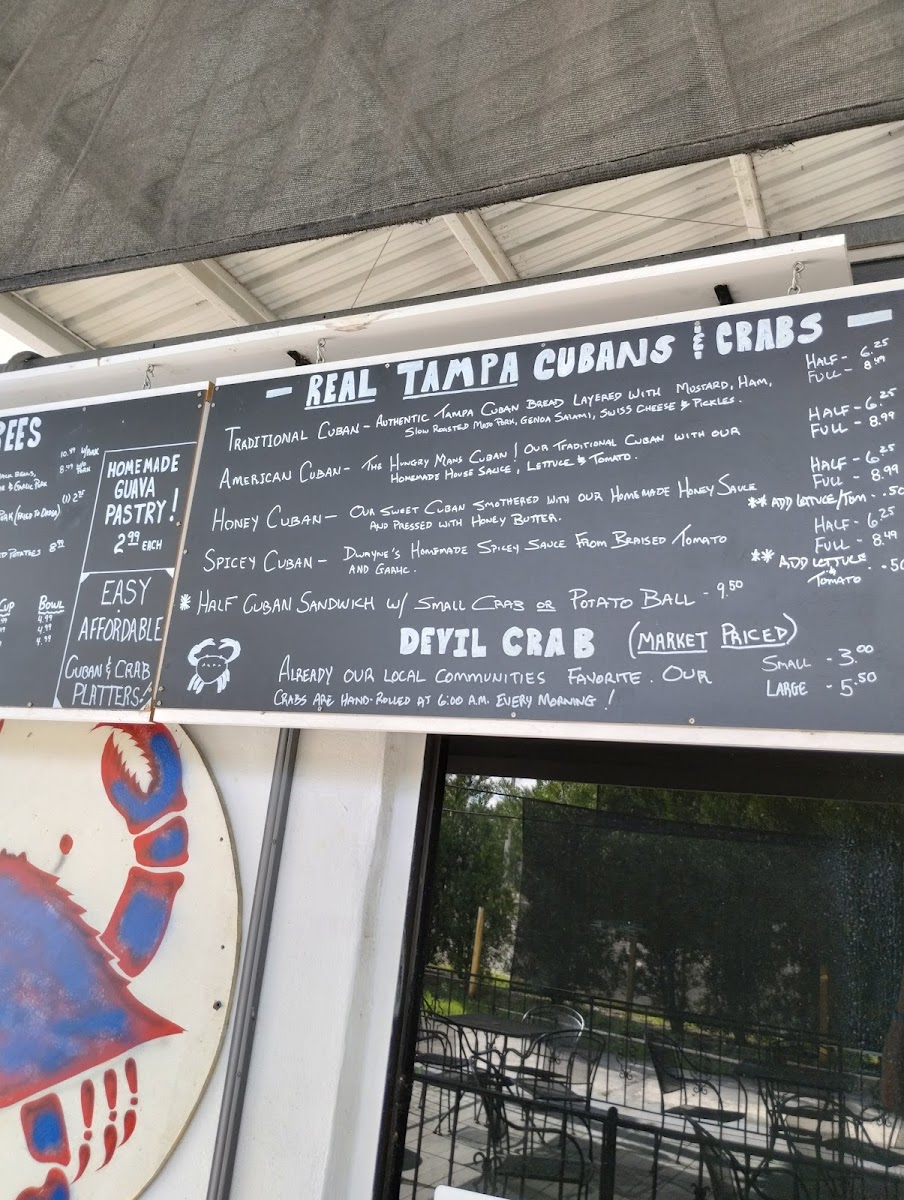 BEES
10.99 w/PORK
8.49 w/o PORK
BLACK BEANS,
& GARLIC PORK
(1) 2.25
PORK (FRIED TO ORDER)
POTATOES 8.99
CUP BOWL
4.99
4.99
4.99
HOMEMADE
GUAVA
PASTRY!
2.99 EACH
EASY
AFFORDABLE
CUBAN & CRAB
PLATTERS!
- REAL TAMPA CUBANS & CRABS -
TRADITIONAL CUBAN - AUTHENTIC TAMPA CUBAN BREAD LAYERED WITH MUSTARD, HAM,
SLOW ROASTED MOJO PORK, GENOA SALAMI, SWISS CHEESE & PICKLES.
HALF - 6.25
FULL - 8.49
AMERICAN CUBAN - THE HUNGRY MANS CUBAN! OUR TRADITIONAL CUBAN WITH OUR
HOMEMADE HOUSE SAUCE, LETTUCE & TOMATO.
HALF - 6.25
FULL - 8.99
HONEY CUBAN - OUR SWEET CUBAN SMOTHERED WITH OUR HOMEMADE HONEY SAUCE
AND PRESSED WITH HONEY BUTTER.
HALF - 6.25
FULL - 8.99
** ADD LETTUCE/TOM. - .50
SPICEY CUBAN - DWAYNE'S HOMEMADE SPICEY SAUCE FROM BRAISED TOMATO
AND GARLIC.
HALF - 6.25
FULL - 8.49
** ADD LETTUCE
& TOMATO - .50
* HALF CUBAN SANDWICH W/ SMALL CRAB OR POTATO BALL - 9.50
DEVIL CRAB (MARKET PRICED)
TAMPA
ALREADY OUR LOCAL COMMUNITIES FAVORITE. OUR
CRABS ARE HAND-ROLLED AT 6:00 A.M. EVERY MORNING!
SMALL - 3.00
LARGE - 5.50